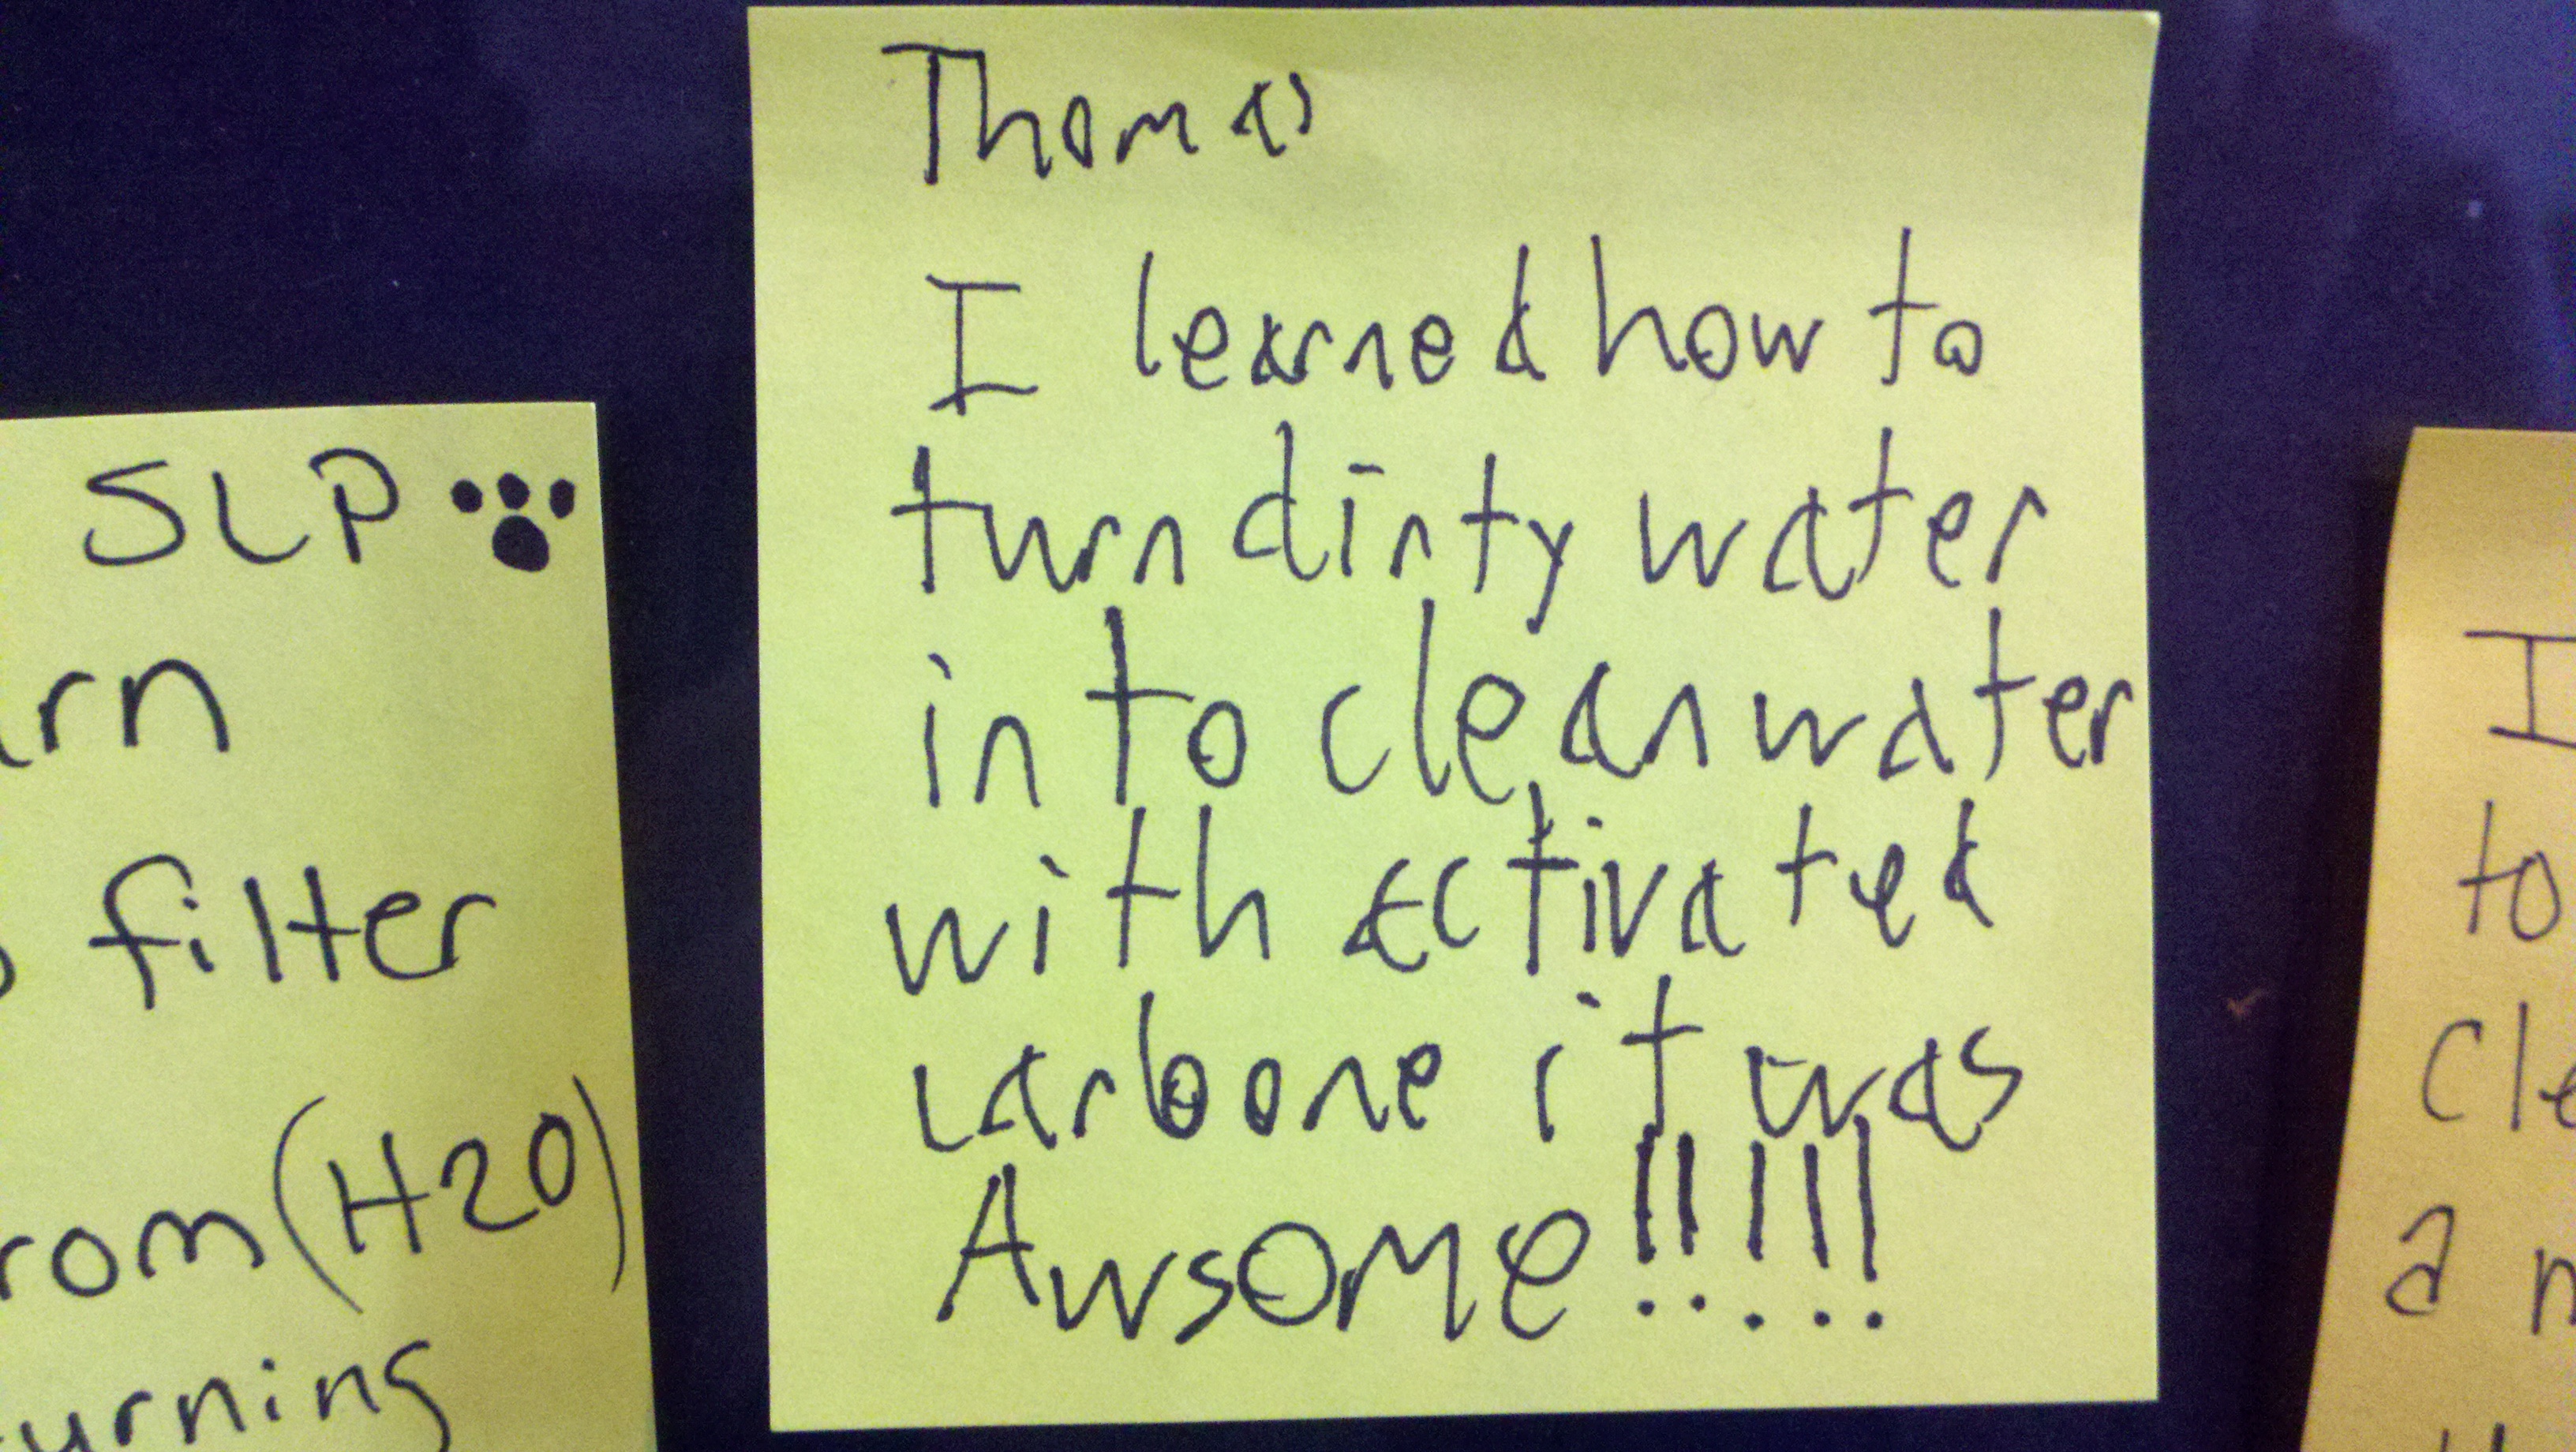 Thomas
I learned how to
turn dirty water
into clean water
with activated
carbone it was
Awsome!!!!!
SLP
rn
filter
rom (H20)
urning
I
to
cle
a n